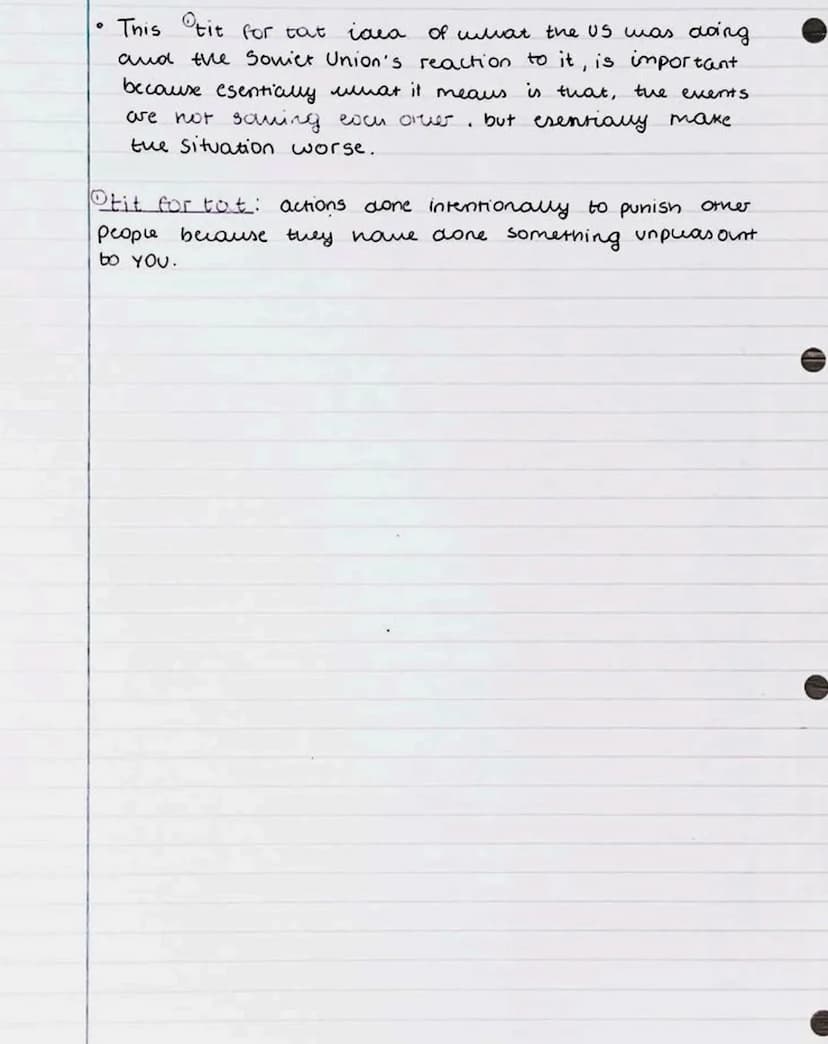 • This ①tit for tat idea of what the US was doing
and the Soviet Union's reaction to it, is important
because esentially what it means is that, the events
are not solving each other, but esentially make
the situation worse.
①tit for tat: actions done intentionally to punish other
people because they have done something unpleasant
to YOU.